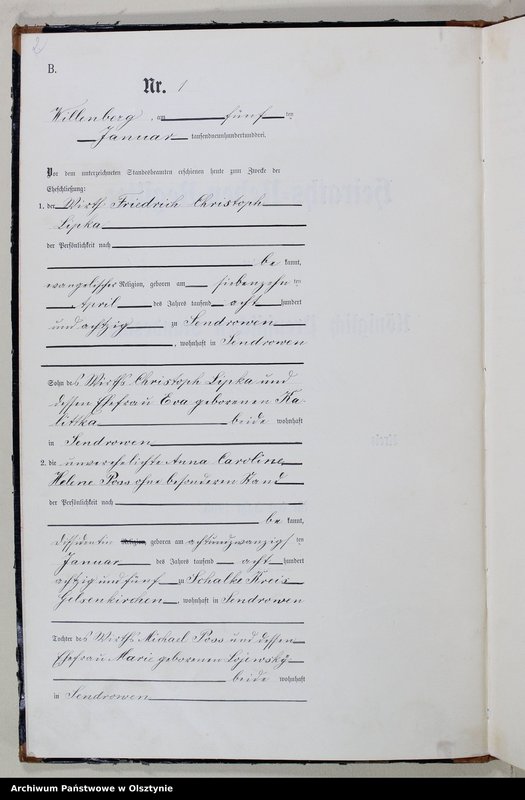 2
B.
Nr. 1
Willenberg, am fünf ten
Januar tausendneunhundertunddrei.
Vor dem unterzeichneten Standesbeamten erschienen heute zum Zwecke der
Eheschließung:
1. der Wirth Friedrich Christoph
Lipka
der Persönlichkeit nach
be kannt,
evangelischer Religion, geboren am siebenzehn ten
April des Jahres tausend acht hundert
und achtzig zu Sendrowen
, wohnhaft in Sendrowen
Sohn des Wirths Christoph Lipka und
dessen Ehefrau Eva geborenen Ka-
littka beide wohnhaft
in Sendrowen
2. die unverehelichte Anna Caroline
Helene Poss ohne besonderen Stand
der Persönlichkeit nach
be kannt,
Dissidentin Religion, geboren am achtundzwanzigs ten
Januar des Jahres tausend acht hundert
achtzig und fünf zu Schalke Kreis
Gelsenkirchen, wohnhaft in Sendrowen
Tochter des Wirths Michael Poss und dessen
Ehefrau Marie geborenen Lojewsky
beide wohnhaft
in Sendrowen
Archiwum Państwowe w Olsztynie